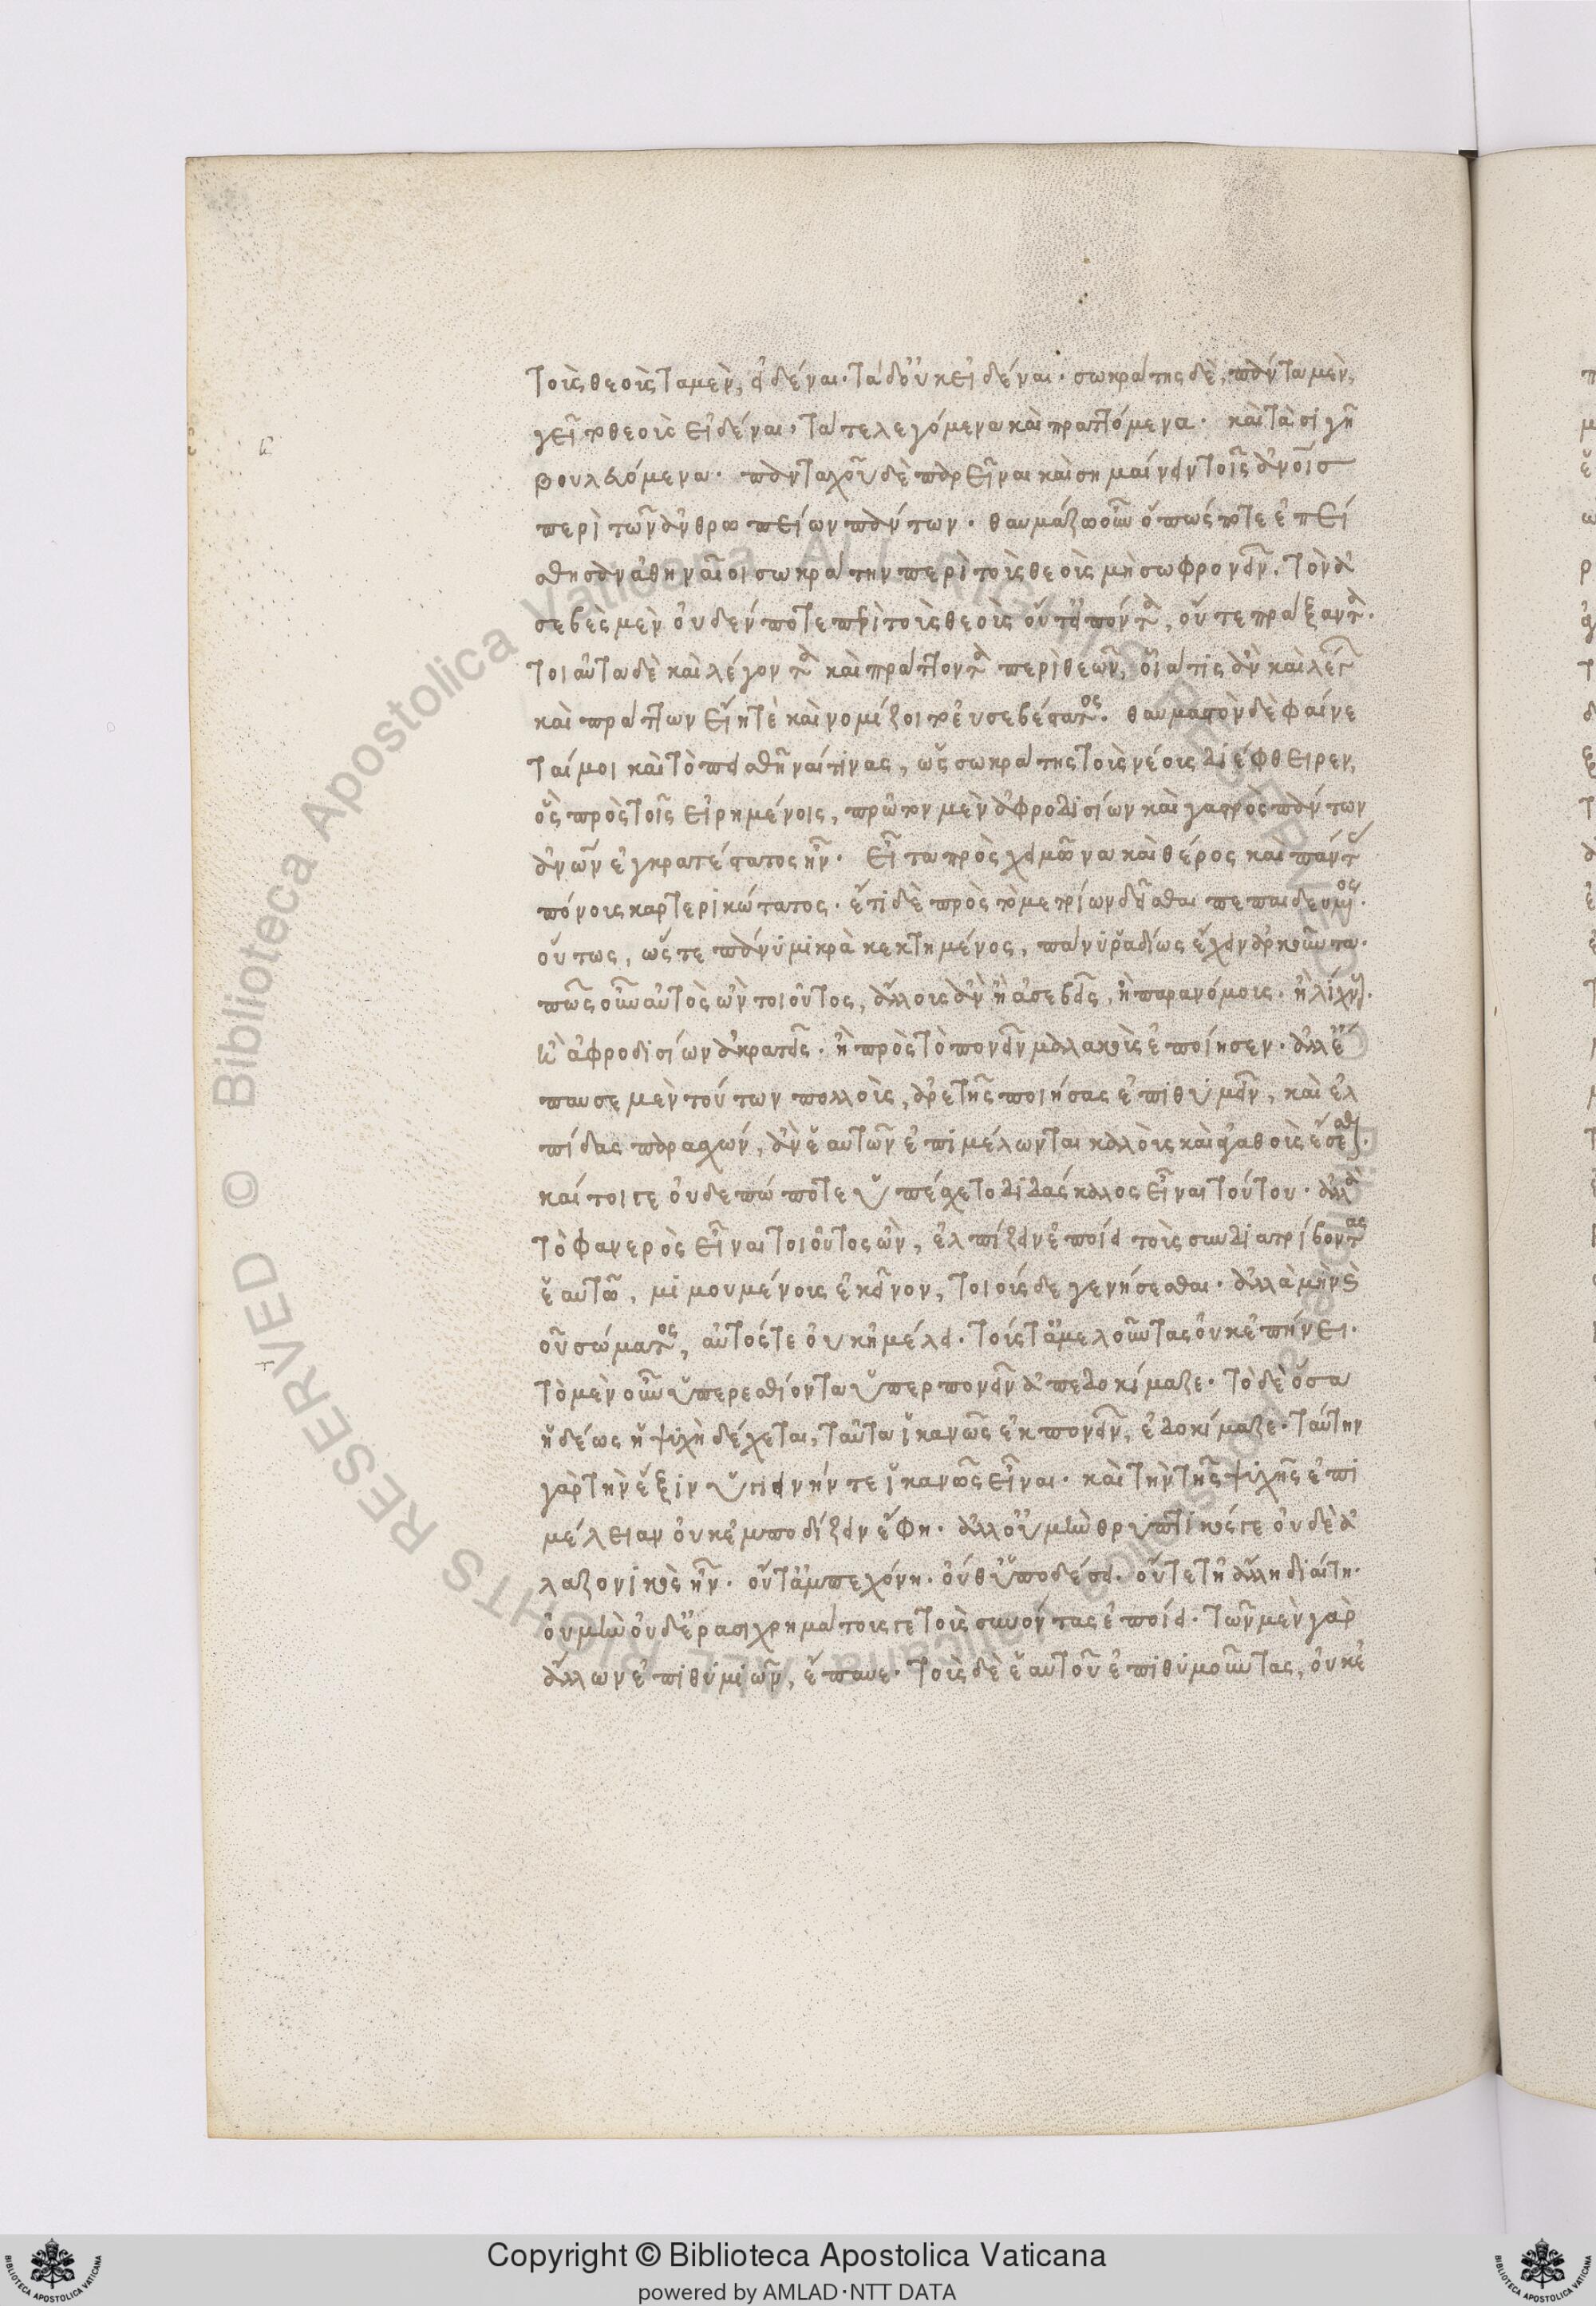 τοὺς θεοὺς τα μὲν, εἰδέναι· τὰ δ' οὐκ εἰδέναι· σωκράτης δὲ, πάντα μὲν,
ἡγεῖτο θεοὺς εἰδέναι, τά τε λεγόμενα καὶ πραττόμενα· καὶ τὰ σιγῆ
βουλευόμενα· πανταχοῦ δὲ παρεῖναι καὶ σημαίνειν τοῖς ἀνοις
περὶ τῶν ἀνθρωπείων πάντων· θαυμάζω οὖν ὅπως ποτὲ ἐπεί
σθησαν ἀθηναῖοι σωκράτην περὶ τοὺς θεοὺς μὴ σωφρονεῖν. τὸν ἀ
σεβὲς μὲν οὐδέν ποτε περὶ τοὺς θεοὺς οὔτ' εἰπόντα, οὔτε πράξαντα.
τοιαῦτα δὲ καὶ λέγοντα καὶ πράττοντα περὶ θεῶν, οἷά τις ἂν καὶ λέγων
καὶ πράττων εἴη τὲ καὶ νομίζοιτο εὐσεβέστατος. θαυμαστὸν δὲ φαίνε
ταί μοι καὶ τὸ πεισθῆναί τινας, ὡς σωκράτης τοὺς νέους διέφθειρεν,
ὃς πρὸς τοῖς εἰρημένοις, πρῶτον μὲν ἀφροδισίων καὶ γαστρὸς πάντων
ἀνων ἐγκρατέστατος ἦν· εἶτα πρὸς χειμῶνα καὶ θέρος καὶ πάντας
πόνους καρτερικώτατος· ἔτι δὲ πρὸς τὸ μετρίων δεῖσθαι πεπαιδευμένος.
οὕτως, ὥστε πάνυ μικρὰ κεκτημένος, πάνυ ῥαδίως ἔχειν ἀρκοῦντα.
πῶς οὖν αὐτὸς ὢν τοιοῦτος, ἄλλους ἂν ἢ ἀσεβεῖς, ἢ παρανόμους· ἢ λίχνους.
ἢ ἀφροδισίων ἀκρατεῖς· ἢ πρὸς τὸ πονεῖν μαλακοὺς ἐποίησεν· ἀλλ' ἔ
παυσε μὲν τούτων πολλοὺς, ἀρετῆς ποιήσας ἐπιθυμεῖν, καὶ ἐλ
πίδας παρασχών, ἂν ἑαυτῶν ἐπιμέλωνται καλοὺς καὶ ἀγαθοὺς ἔσεσθαι.
καίτοι γε οὐδεπώποτε ὑπέσχετο διδάσκαλος εἶναι τούτου· ἀλλὰ
τὸ φανερὸς εἶναι τοιοῦτος ὢν, ἐλπίζειν ἐποίει τοὺς συνδιατρίβοντας
ἑαυτῷ, μιμουμένους ἐκεῖνον, τοιούσδε γενήσεσθαι· ἀλλὰ μὴν καὶ
οῦ σώματος, αὐτός τε οὐκ ἠμέλει. τούς τ' ἀμελοῦντας οὐκ ἐπήνει·
τὸ μὲν οὖν ὑπερεσθίοντα ὑπερπονεῖν ἀπεδοκίμαζε· τὸ δὲ ὅσα
ἡδέως ἡ ψυχὴ δέχεται, ταῦτα ἱκανῶς ἐκπονεῖν, ἐδοκίμαζε· ταύτην
γὰρ τὴν ἕξιν ὑγιεινήν τε ἱκανῶς εἶναι· καὶ τὴν τῆς ψυχῆς ἐπι
μέλειαν οὐκ ἐμποδίζειν ἔφη· ἀλλ' οὐ μὴν θρυπτικός γε οὐδὲ ἀ
λαζονικὸς ἦν· οὔτ' ἀμπεχόνη· οὔθ' ὑποδέσει· οὔτε τῆ ἄλλη διαίτη·
οὐ μὴν οὐδ' ἐρασιχρημάτους γε τοὺς συνόντας ἐποίει· τῶν μὲν γὰρ
ἄλλων ἐπιθυμιῶν, ἔπαυε· τοὺς δὲ ἑαυτοῦ ἐπιθυμοῦντας, οὐκ ἐ
Copyright © Biblioteca Apostolica Vaticana
powered by AMLAD·NTT DATA